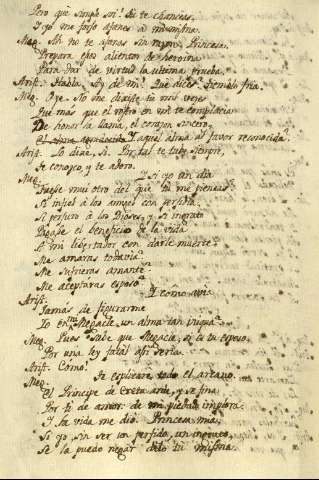 Pero que simple soi! Si te chanceas,
Y yó me formo afanes á mi misma.
Meg. Ah! no te afanas sin razon, Princesa,
Prepara esos alientos de heroina
Para dar de virtud la ultima prueba.
Arist. Habla. Ay de mi! Que dices? Tiemblo fria.
Meg. Oye. No me dixiste tú mil veces
Que mas que el rostro en mi te complacia
De honor la llama, el corazon sincero,
Y aquel alma al favor reconocida?
Arist. Lo dixe, si. Por tal te tube siempre,
Te conozco, y te adoro.
Meg. Y si yó un dia
Fuese mui otro del que tú me piensas?
Si infiel á los amigos con perfidia,
Si perjuro á los Dioses, y si ingrato
Pagase el beneficio de la vida
A mi libertador con darle muerte?
Me amaras todavia?
Me sufrieras amante?
Me aceptaras esposo?
Arist. Y como
Jamas de figurarme
Yo en mi Megacle un alma tan iniqua?
Meg. Pues sabe que Megacle, si es tu esposo,
Por una ley fatal asi seria.
Arist. Como!
Meg. Te explicaré todo el arcano.
El Principe de Creta arde, y se fina
Por ti de amor: de mi piedad implora:
Y la vida me dió. Princesa mia,
Si yó, sin ser un perfido, un ingrato,
Se la puedo negar dilo tú misma.